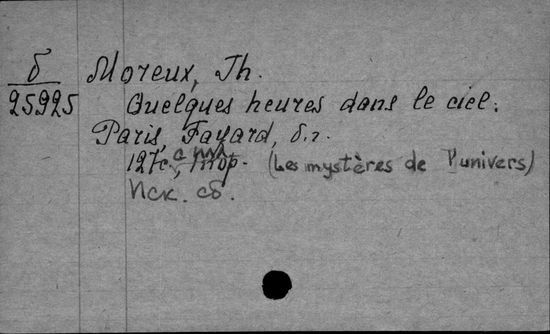 б
25925
Moreux, Th.
Quelques heures dans le ciel.
Paris, Fayard, б.г.
127с. с илл. (Les mystères de l'univers)
Иск. сб.